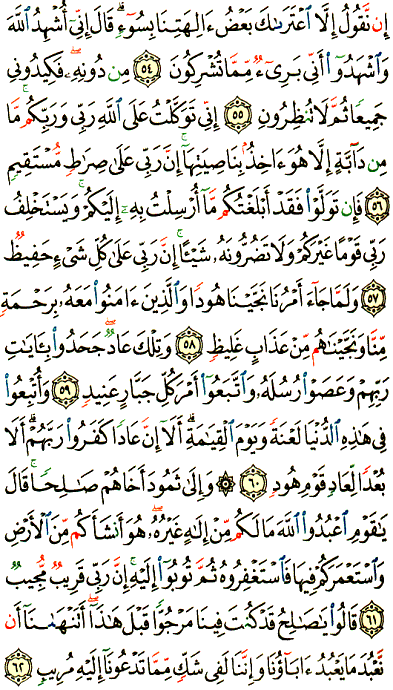 إِن نَّقُولُ إِلَّا ٱعْتَرَىٰكَ بَعْضُ ءَالِهَتِنَا بِسُوٓءٍۗ قَالَ إِنِّىٓ أُشْهِدُ ٱللَّهَ
وَٱشْهَدُوٓا۟ أَنِّى بَرِىٓءٌ مِّمَّا تُشْرِكُونَ ٥٤ مِن دُونِهِۦۖ فَكِيدُونِى
جَمِيعًا ثُمَّ لَا تُنظِرُونِ ٥٥ إِنِّى تَوَكَّلْتُ عَلَى ٱللَّهِ رَبِّى وَرَبِّكُمۚ مَّا
مِن دَآبَّةٍ إِلَّا هُوَ ءَاخِذٌۢ بِنَاصِيَتِهَآۚ إِنَّ رَبِّى عَلَىٰ صِرَٰطٍ مُّسْتَقِيمٍ
٥٦ فَإِن تَوَلَّوْا۟ فَقَدْ أَبْلَغْتُكُم مَّآ أُرْسِلْتُ بِهِۦٓ إِلَيْكُمْۚ وَيَسْتَخْلِفُ
رَبِّى قَوْمًا غَيْرَكُمْ وَلَا تَضُرُّونَهُۥ شَيْـًٔاۚ إِنَّ رَبِّى عَلَىٰ كُلِّ شَىْءٍ حَفِيظٌ
٥٧ وَلَمَّا جَآءَ أَمْرُنَا نَجَّيْنَا هُودًا وَٱلَّذِينَ ءَامَنُوا۟ مَعَهُۥ بِرَحْمَةٍ
مِّنَّا وَنَجَّيْنَٰهُم مِّنْ عَذَابٍ غَلِيظٍ ٥٨ وَتِلْكَ عَادٌۖ جَحَدُوا۟ بِـَٔايَٰتِ
رَبِّهِمْ وَعَصَوْا۟ رُسُلَهُۥ وَٱتَّبَعُوٓا۟ أَمْرَ كُلِّ جَبَّارٍ عَنِيدٍ ٥٩ وَأُتْبِعُوا۟
فِى هَٰذِهِ ٱلدُّنْيَا لَعْنَةً وَيَوْمَ ٱلْقِيَٰمَةِۗ أَلَآ إِنَّ عَادًا كَفَرُوا۟ رَبَّهُمْۗ أَلَا
بُعْدًا لِّعَادٍ قَوْمِ هُودٍ ٦٠ ۞ وَإِلَىٰ ثَمُودَ أَخَاهُمْ صَٰلِحًاۚ قَالَ
يَٰقَوْمِ ٱعْبُدُوا۟ ٱللَّهَ مَا لَكُم مِّنْ إِلَٰهٍ غَيْرُهُۥۖ هُوَ أَنشَأَكُم مِّنَ ٱلْأَرْضِ
وَٱسْتَعْمَرَكُمْ فِيهَا فَٱسْتَغْفِرُوهُ ثُمَّ تُوبُوٓا۟ إِلَيْهِۚ إِنَّ رَبِّى قَرِيبٌ مُّجِيبٌ
٦١ قَالُوا۟ يَٰصَٰلِحُ قَدْ كُنتَ فِينَا مَرْجُوًّا قَبْلَ هَٰذَآۖ أَتَنْهَىٰنَآ أَن
نَّعْبُدَ مَا يَعْبُدُ ءَابَآؤُنَا وَإِنَّنَا لَفِى شَكٍّ مِّمَّا تَدْعُونَآ إِلَيْهِ مُرِيبٍ ٦٢